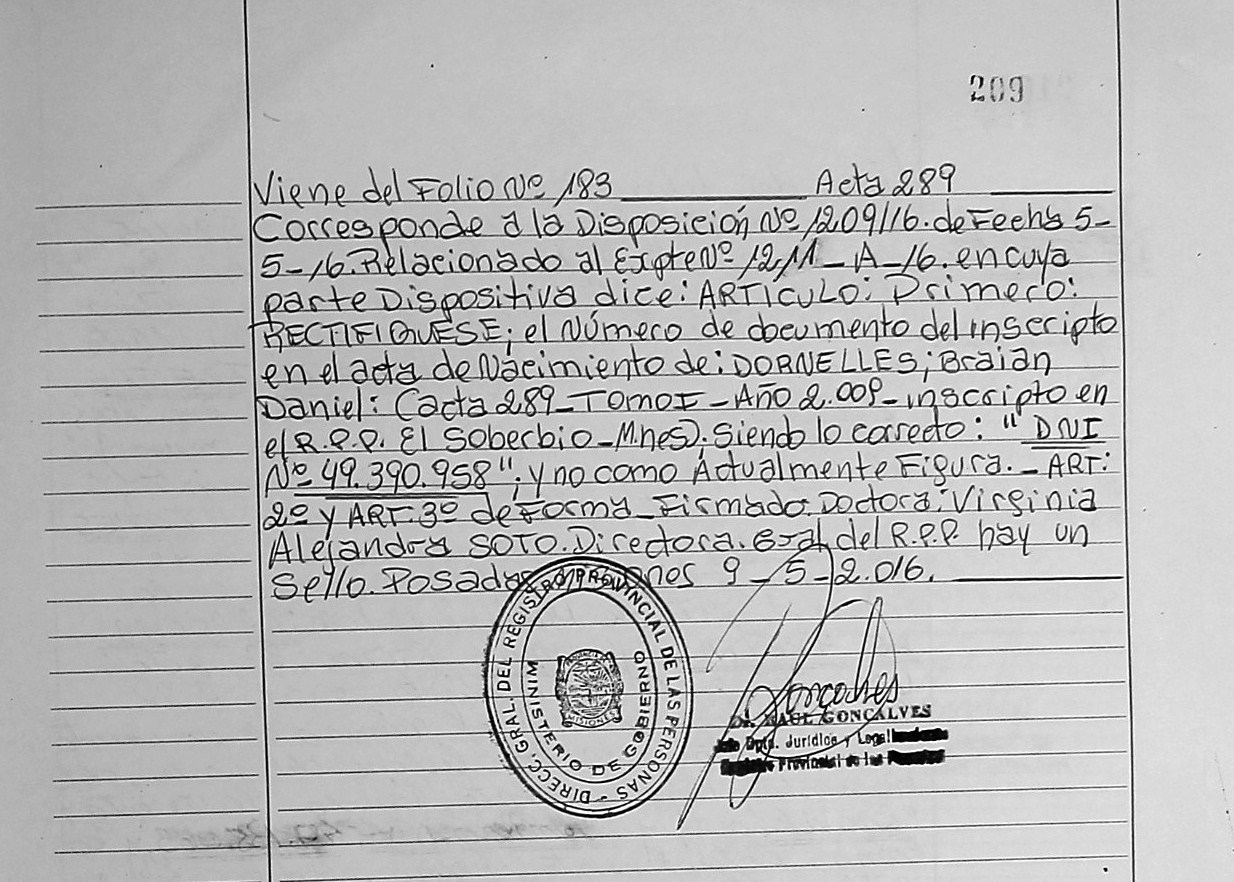 209
Viene del Folio Nº 183 Acta 289
Corresponde a la Disposición Nº 1209/16. de Fecha 5-
5-16. Relacionado al Expte Nº 1211-A-16. en cuya
parte Dispositiva dice: ARTÍCULO: Primero:
RECTIFIQUESE; el Número de documento del inscripto
en el acta de Nacimiento de: DORNELLES; Braian
Daniel: (acta 289-Tomo I-Año 2.009-inscripto en
el R.P.P. El Soberbio-Mnes). Siendo lo correcto: "DNI
Nº 49.390.958"; y no como Actualmente Figura.- ART:
2º y ART. 3º de Forma-Firmado: Doctora: Virginia
Alejandra SOTO. Directora. Gral. del R.P.P. hay un
Sello. Posadas 9-5-2.016.
DIRECC. GRAL. DEL REGISTRO PROVINCIAL DE LAS PERSONAS -
MINISTERIO DE GOBIERNO
MISIONES
Goncalves
Dr. RAUL GONCALVES
Jefe Dpto. Jurídico y
Provincial de las